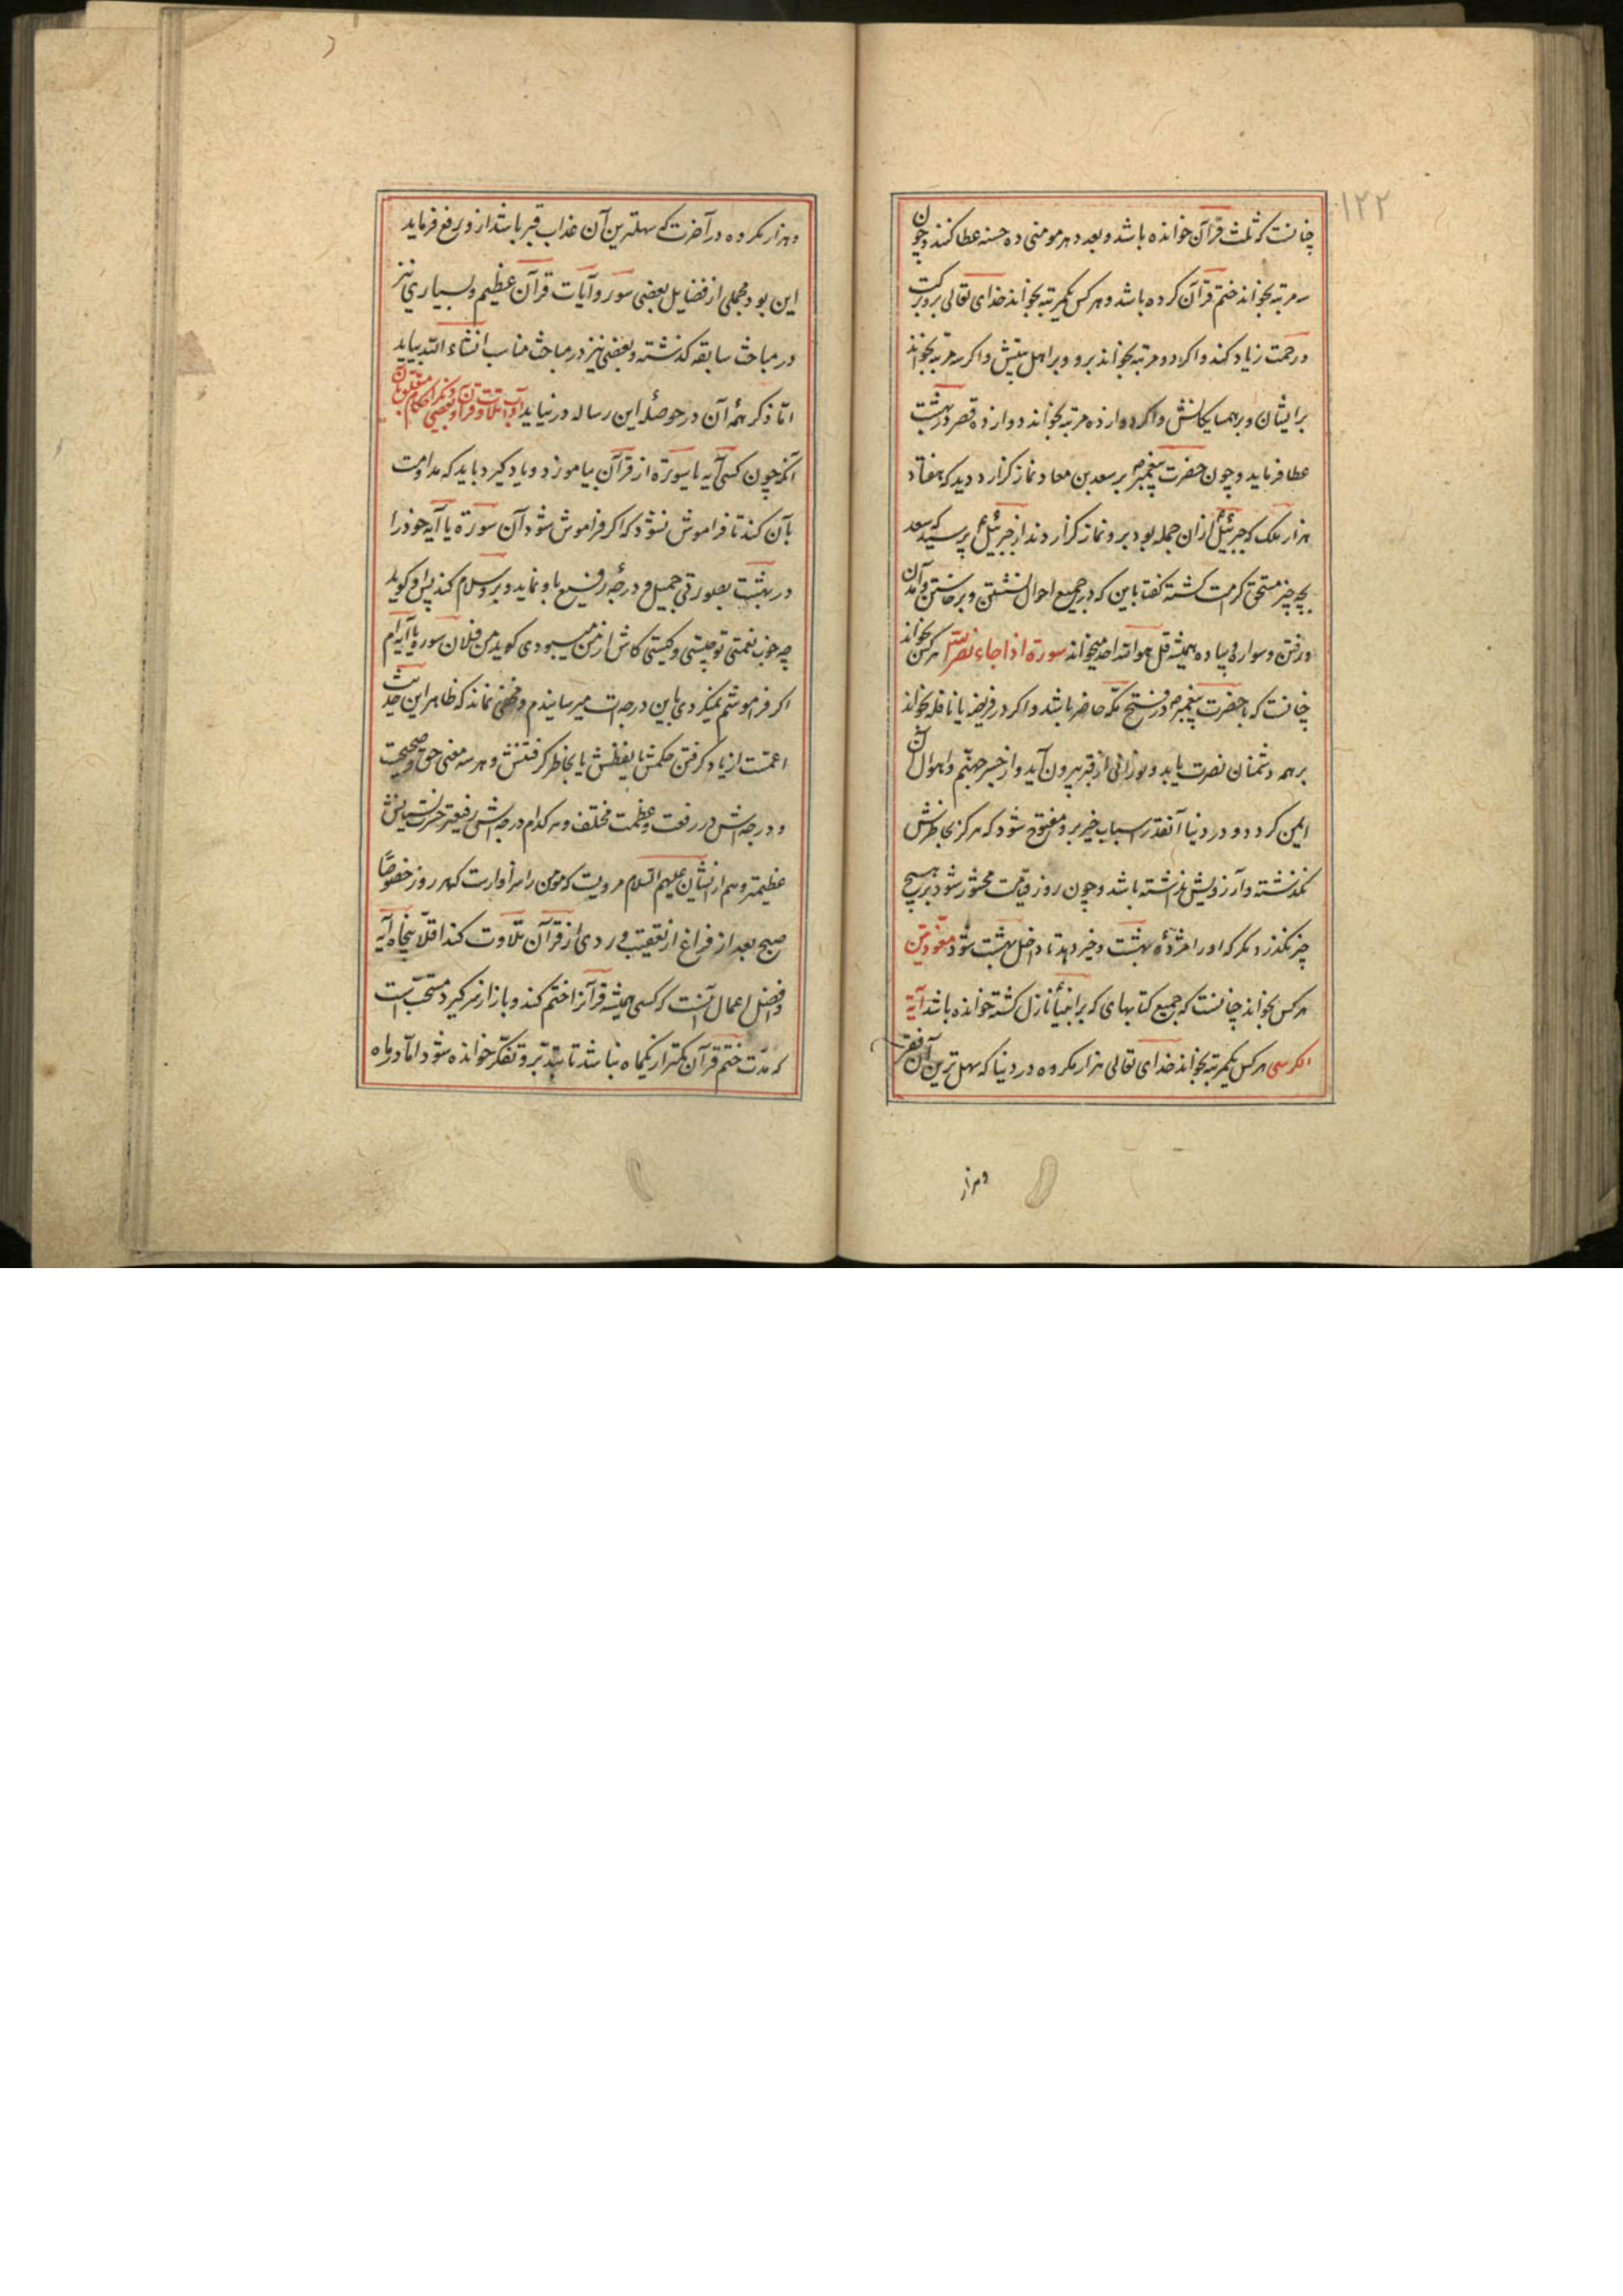 ۱۲۲
چنانست که ثلث قرآن خوانده باشد و بعدد هر مومنی ده حسنه عطا کنند و چون
سه مرتبه بخواند ختم قرآن کرده باشد و هر کس یکمرتبه بخواند خدای تعالی برو برکت
و رحمت زیاد کند و اکر دو مرتبه بخواند برو و بر اهل بیتش و اکر سه مرتبه بخواند
بر ایشان و بر همسایکانش و اکر دوازده مرتبه بخواند دوازده قصر در بهشت
عطا فرماید و چون حضرت پیغمبر ص بر سعد بن معاد نماز کزارد دید که هفتاد
هزار ملک که جبرئیل ازان جمله بود برو نماز کزاردند از جبرئیل ع پرسید که سعد
بچه چیز مستحق کرامت کشته کفتا باین که در جمیع احوال نشستن و برخاستن و آمدن
و رفتن و سواره و پیاده همیشه قل هو الله احد میخواند سورة اذا جاء نصر الله هر کس بخواند
چنانست که با حضرت پیغمبر ص در فتح مکّه حاضر باشد و اکر در فریضه یا نافله بخواند
بر همه دشمنان نصرت یابد و نورانی از قبر بیرون آید و از جسر جهنّم و اهوال آن
ایمن کردد و در دنیا آنقدر اسباب خیر برو مفتوح شود که هرکز بخاطرش
نکذشته و آرزویش نداشته باشد و چون روز قیامت محشور شود بر هیچ
چیز نکذرد مکر که او را مژدهٔ بهشت و خیر دهد تا داخل بهشت شود معوّذتین
هر کس بخواند چنانست که جمیع کتابهای که بر انبیا نازل کشته خوانده باشد آیة
الکرسی هر کس یکمرتبه بخواند خدای تعالی هزار مکروه در دنیا که سهل ترین آن فقر
و هزار
و هزار مکروه در آخرت که سهلترین آن عذاب قبر باشد ازو رفع فرماید
این بود مجملی از فضایل بعضی سور و آیات قرآن عظیم و بسیاری نیز
در مباحث سابقه کذشته و بعضی نیز در مباحث مناسب انشاء الله بیاید
امّا ذکر همهٔ آن در حوصلهٔ این رساله در نیاید آداب تلاوت قرآن و بعضی دیکر احکام متعلق بآن
آنکه چون کسی آیه یا سورة از قرآن بیاموزد و یاد کیرد باید که مداومت
بآن کند تا فراموش نشود که اکر فراموش شود آن سورة یا آیه خود را
در بهشت بصورتی جمیل و درجهٔ رفیع باو نماید و برو سلام کند پس او کوید
چه خوب نعمتی تو چیستی و کیستی کاش از من میبودی کوید من فلان سوره یا آیه‌ام
اکر فراموشم نمیکردی باین درجه‌ات میرسانیدم و مخفی نماند که ظاهر این حدیث
اعمّست از یاد کرفتن حکمش یا لفظش یا بخاطر کرفتنش و هر سه معنی حق و صحیحست
و درجه‌اش در رفعت و عظمت مختلف و هر کدام درجه‌اش رفیعتر حسرت نسیانش
عظیمتر و هم از ایشان علیهم السّلام مرویست که مومن را سزاوارست که هر روز خصوصًا
صبح بعد از فراغ از تعقیب وردی از قرآن تلاوت کند اقلّا پنجاه آیه
و افضل اعمال آنست که کسی همیشه قرآنرا ختم کند و باز از سر کیرد مستحبّ است
که مدّت ختم قرآن کمتر از یکماه نباشد تا بتدبّر و تفکّر خوانده شود امّا در ماه